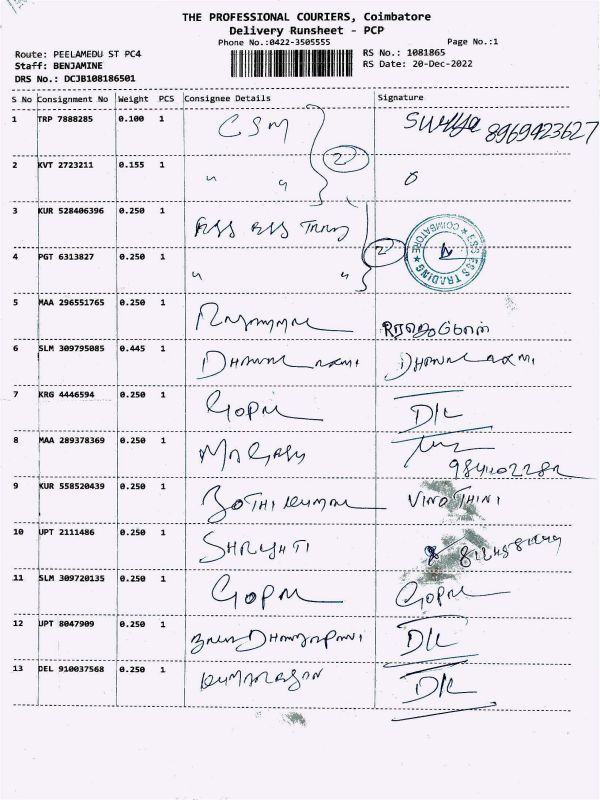 THE PROFESSIONAL COURIERS, Coimbatore
Delivery Runsheet - PCP
Phone No.:0422-3505555
Page No.:1
Route: PEELAMEDU ST PC4
RS No.: 1081865
Staff: BENJAMINE
RS Date: 20-Dec-2022
DRS No.: DCJB108186501
S No Consignment No Weight PCS Consignee Details Signature
1 TRP 7888285 0.100 1 CSM Surya 8969923627
2 KVT 2723211 0.155 1 " "
2
3 KUR 528406396 0.250 1 ESS ESS Trading
4 PGT 6313827 0.250 1 " "
2
ESS ESS TRADING ★ COIMBATORE ★
5 MAA 296551765 0.250 1
6 SLM 309795085 0.445 1 DHANALAXMI DHANALAXMI
7 KRG 4446594 0.250 1 GOPAL D/L
8 MAA 289378369 0.250 1
9 KUR 558520439 0.250 1 BOTHIKUMAR VINOTHINI
10 UPT 2111486 0.250 1 SHRUHTI
11 SLM 309720135 0.250 1 GOPAL GOPAL
12 UPT 8047909 0.250 1 D/L
13 DEL 910037568 0.250 1 KUMARESAN D/L